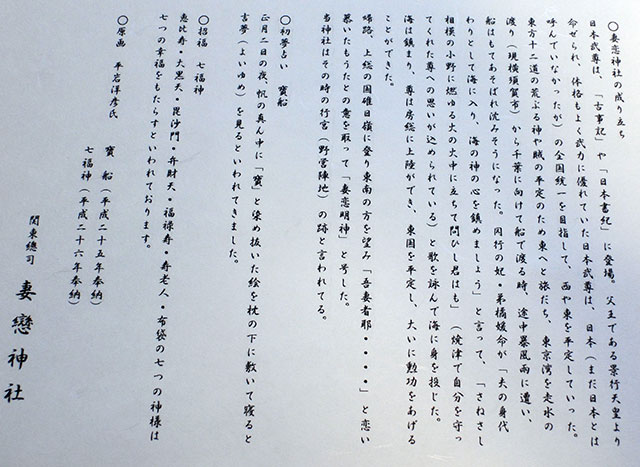 〇妻恋神社の成り立ち
日本武尊は、「古事記」や「日本書紀」に登場。父王である景行天皇より
命ぜられ、体格もよく武力に優れていた日本武尊は、日本（まだ日本とは
呼んでいなかったが）の全国統一を目指して、西や東を平定していった。
東方十二道の荒ぶる神や賊の平定のため東へと旅だち、東京湾を走水の
渡り（現横須賀市）から千葉に向けて船で渡る時、途中暴風雨に遭い、
船はもてあそばれ沈みそうになった。同行の妃・弟橘媛命が「夫の身代
わりとして海に入り、海の神の心を鎮めましょう」と言って、「さねさし
相模の小野に燃ゆる火の火中に立ちて問ひし君はも」（焼津で自分を守っ
てくれた尊への思いが込められている）と歌を詠んで海に身を投じた。
海は鎮まり、尊は房総に上陸ができ、東国を平定し、大いに勲功をあげる
ことができた。
帰路、上総の国碓日嶺に登り東南の方を望み「吾妻者耶・・・・」と恋い
慕いたもうたとの意を取って「妻恋明神」と号した。
当神社はその時の行宮（野営陣地）の跡と言われてる。
〇初夢占い　寶船
正月二日の夜、帆の真ん中に「寶」と染め抜いた絵を枕の下に敷いて寝ると
吉夢（よいゆめ）を見るといわれてきました。
〇招福　七福神
恵比寿・大黒天・毘沙門・弁財天・福禄寿・寿老人・布袋の七つの神様は
七つの幸福をもたらすといわれております。
〇原画　平岩洋彦氏
寶　船（平成二十五年奉納）
七福神（平成二十六年奉納）
関東總司　妻戀神社